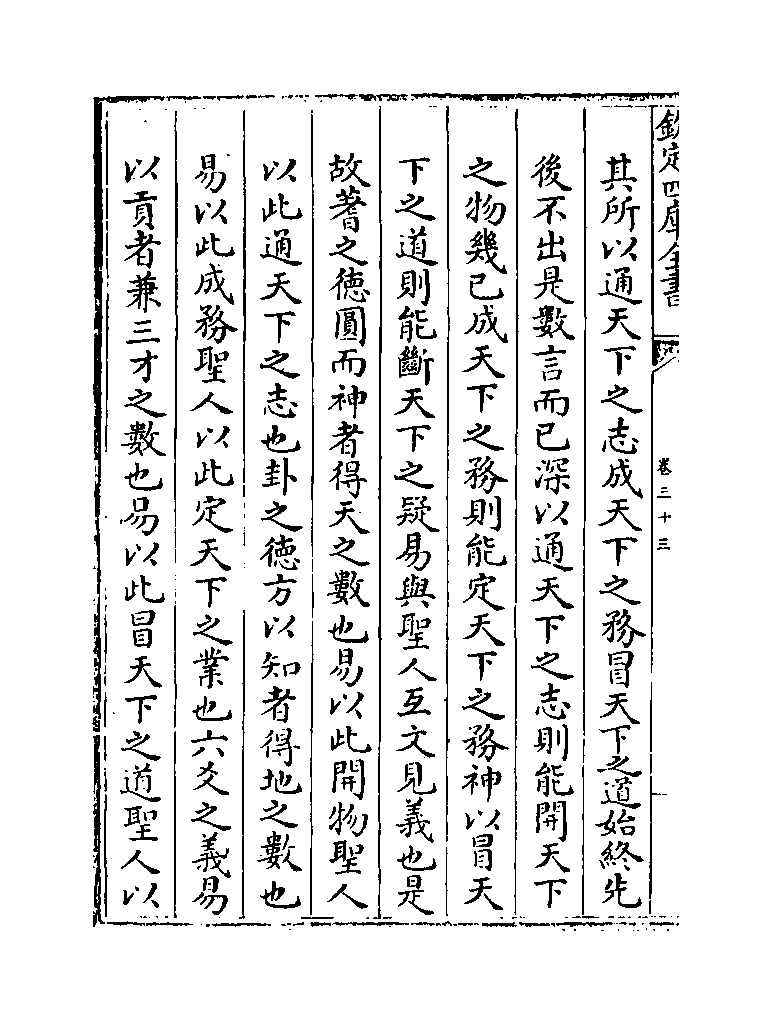 欽定四庫全書
卷三十三
其所以通天下之志成天下之務冒天下之道始終先
後不出是數言而已深以通天下之志則能開天下
之物幾已成天下之務則能定天下之務神以冒天
下之道則能斷天下之疑易與聖人互文見義也是
故蓍之徳圓而神者得天之數也易以此開物聖人
以此通天下之志也卦之徳方以知者得地之數也
易以此成務聖人以此定天下之業也六爻之義易
以貢者兼三才之數也易以此冒天下之道聖人以